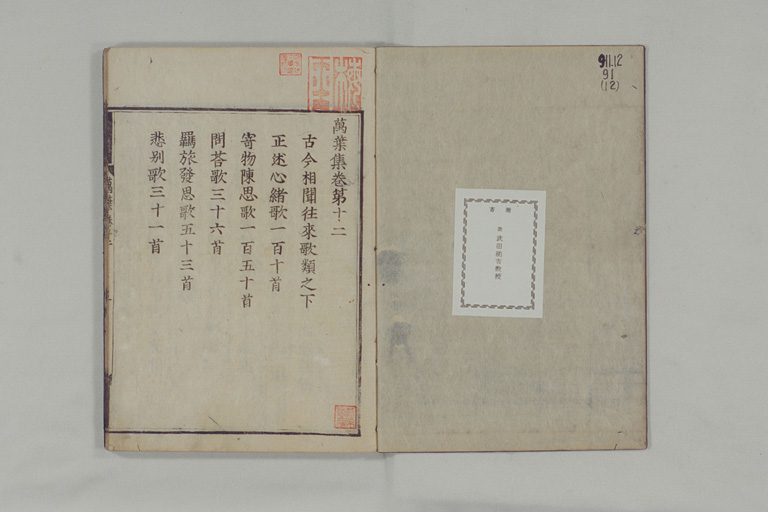 911.12
91
(12)
故 武田祐吉教授
萬葉集卷第十二
古今相聞往來歌類之下
正述心緒歌一百十首
寄物陳思歌一百五十首
問荅歌三十六首
羈旅發思歌五十三首
悲別歌三十一首